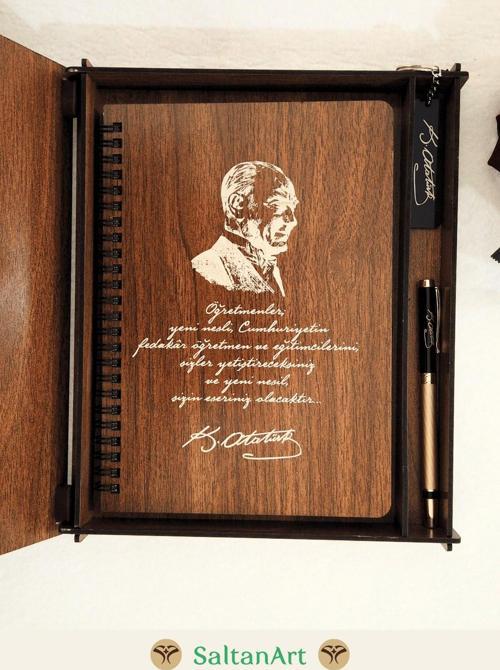 Öğretmenler;
yeni nesli, Cumhuriyetin
fedakâr öğretmen ve eğitimcilerini,
sizler yetiştireceksiniz
ve yeni nesil,
sizin eseriniz olacaktır..
K. Atatürk
K. Atatürk
SaltanArt